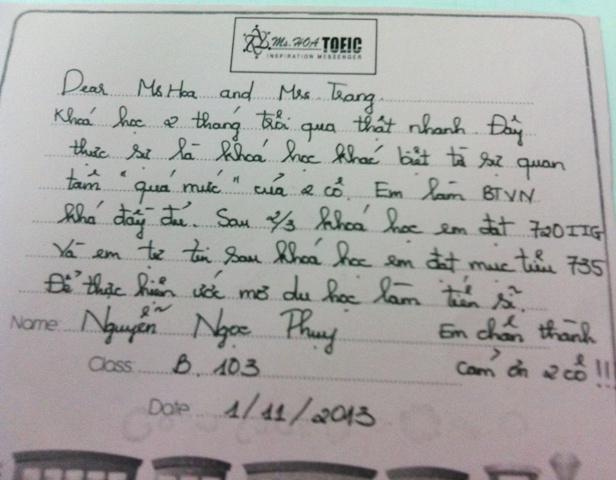 Ms. HOA TOEIC
INSPIRATION MESSENGER
Dear Ms Hoa and Mrs. Trang.
Khoá học 2 tháng trôi qua thật nhanh. Đây
thực sự là khoá học khác biệt từ sự quan
tâm "quá mức" của 2 cô. Em làm BTVN
khá đầy đủ. Sau 2/3 khoá học em đạt 720 IIG
Và em tự tin sau khoá học em đạt mục tiêu 735
Để thực hiện ước mơ du học làm tiến sĩ.
Name Nguyễn Ngọc Phuy Em chân thành
Class B. 103 Cảm ơn 2 cô !!!
Date 1/11/2013